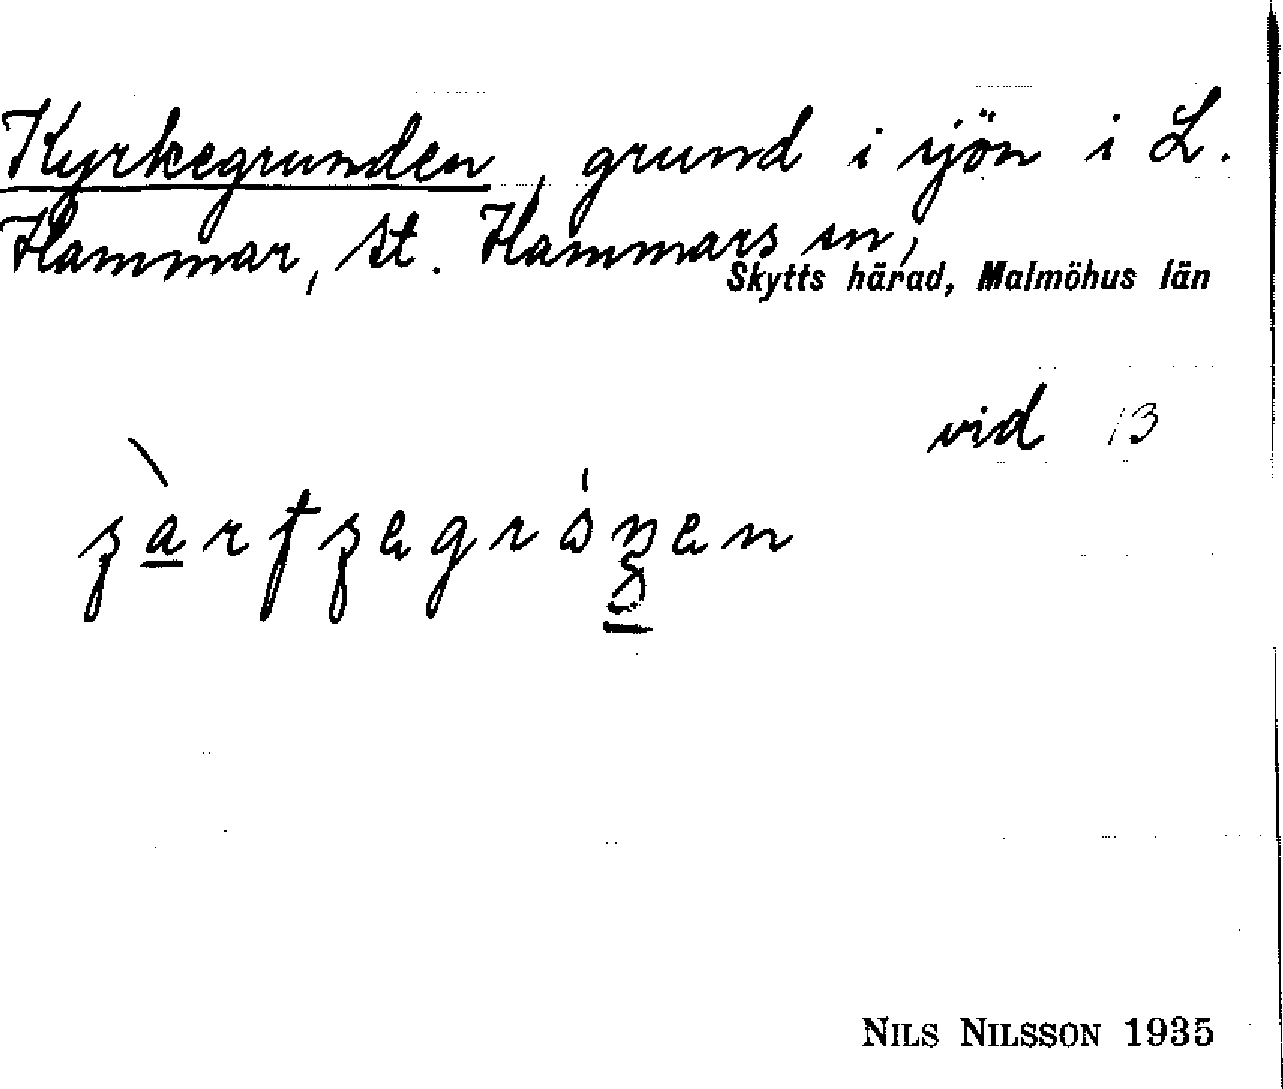 Kyrkegrunden, grund i sjön i L.
Hammar, St. Hammars sn,
Skytts härad, Malmöhus län
vid 13
NILS NILSSON 1935